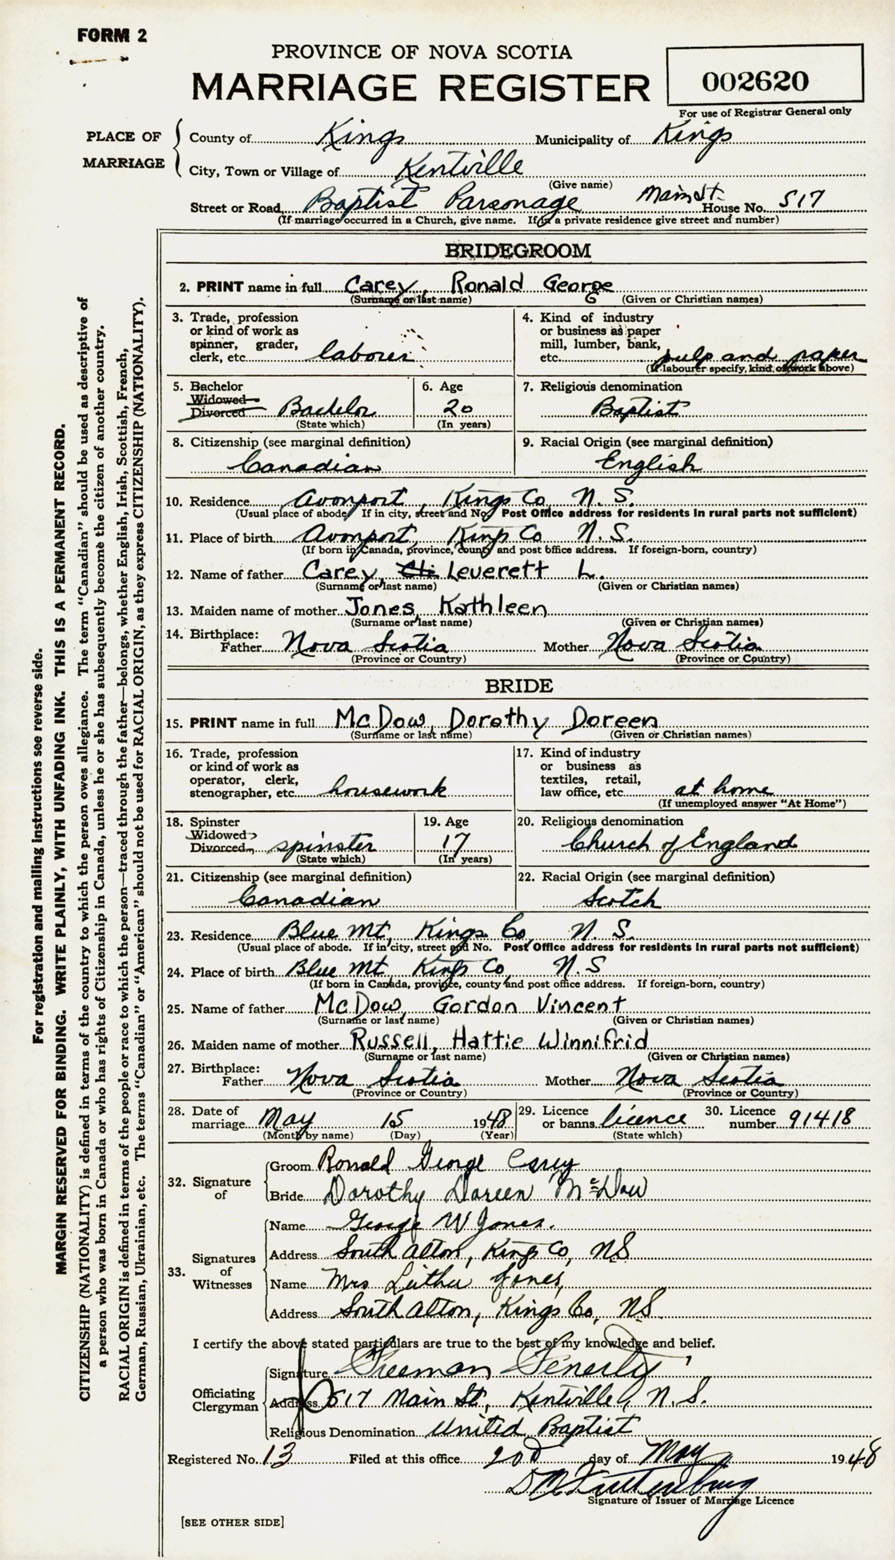 FORM 2
PROVINCE OF NOVA SCOTIA
MARRIAGE REGISTER
002620
For use of Registrar General only
PLACE OF MARRIAGE
County of Kings Municipality of Kings
City, Town or Village of Kentville
(Give name)
Street or Road Baptist Parsonage Main St. House No. 517
(If marriage occurred in a Church, give name. If a private residence give street and number)
BRIDEGROOM
2. PRINT name in full Carey, Ronald George
(Surname or last name) (Given or Christian names)
3. Trade, profession or kind of work as spinner, grader, clerk, etc. laborer
4. Kind of industry or business as paper mill, lumber, bank, etc. pulp and paper
(If labourer specify, kind of work above)
5. Bachelor Widowed Divorced Bachelor
(State which)
6. Age 20
(In years)
7. Religious denomination
Baptist
8. Citizenship (see marginal definition)
Canadian
9. Racial Origin (see marginal definition)
English
10. Residence Avonport, Kings Co N. S.
(Usual place of abode. If in city, street and No. Post Office address for residents in rural parts not sufficient)
11. Place of birth Avonport, Kings Co N. S.
(If born in Canada, province, county and post office address. If foreign-born, country)
12. Name of father Carey Leverett L.
(Surname or last name) (Given or Christian names)
13. Maiden name of mother Jones, Kathleen
(Surname or last name) (Given or Christian names)
14. Birthplace: Father Nova Scotia Mother Nova Scotia
(Province or Country) (Province or Country)
BRIDE
15. PRINT name in full McDow, Dorothy Doreen
(Surname or last name) (Given or Christian names)
16. Trade, profession or kind of work as operator, clerk, stenographer, etc. housework
17. Kind of industry or business as textiles, retail, law office, etc. at home
(If unemployed answer "At Home")
18. Spinster Widowed Divorced spinster
(State which)
19. Age 17
(In years)
20. Religious denomination
Church of England
21. Citizenship (see marginal definition)
Canadian
22. Racial Origin (see marginal definition)
Scotch
23. Residence Blue Mt, Kings Co, N. S.
(Usual place of abode. If in city, street and No. Post Office address for residents in rural parts not sufficient)
24. Place of birth Blue Mt, Kings Co, N. S
(If born in Canada, province, county and post office address. If foreign-born, country)
25. Name of father McDow, Gordon Vincent
(Surname or last name) (Given or Christian names)
26. Maiden name of mother Russell, Hattie Winnifrid
(Surname or last name) (Given or Christian names)
27. Birthplace: Father Nova Scotia Mother Nova Scotia
(Province or Country) (Province or Country)
28. Date of marriage May 15 1948
(Month by name) (Day) (Year)
29. Licence or banns licence
(State which)
30. Licence number 91418
32. Signature of
Groom Ronald George Carey
Bride Dorothy Doreen McDow
33. Signatures of Witnesses
Name George W Jones.
Address South Alton, Kings Co, NS
Name Mrs Luther Jones,
Address South Alton, Kings Co, NS.
I certify the above stated particulars are true to the best of my knowledge and belief.
Officiating Clergyman
Signature Freeman Fenerty
Address 517 Main St, Kentville, N. S.
Religious Denomination United Baptist
Registered No. 13 Filed at this office 20 day of May 1948
Signature of Issuer of Marriage Licence
[SEE OTHER SIDE]
For registration and mailing instructions see reverse side.
MARGIN RESERVED FOR BINDING. WRITE PLAINLY, WITH UNFADING INK. THIS IS A PERMANENT RECORD.
CITIZENSHIP (NATIONALITY) is defined in terms of the country to which the person owes allegiance. The term "Canadian" should be used as descriptive of
a person who was born in Canada or who has rights of Citizenship in Canada, unless he or she has subsequently become the citizen of another country.
RACIAL ORIGIN is defined in terms of the people or race to which the person—traced through the father—belongs, whether English, Irish, Scottish, French,
German, Russian, Ukrainian, etc. The terms "Canadian" or "American" should not be used for RACIAL ORIGIN, as they express CITIZENSHIP (NATIONALITY).